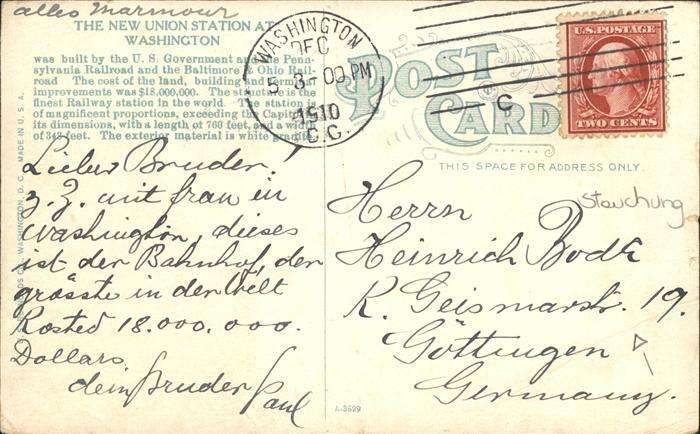 alles Marmour
THE NEW UNION STATION AT
WASHINGTON
was built by the U. S. Government and the Penn-
sylvania Railroad and the Baltimore & Ohio Rail-
road The cost of the land, building and Terminal
improvements was $18,000,000. The structure is the
finest Railway station in the world. The station is
of magnificent proportions, exceeding the Capitol in
its dimensions, with a length of 760 feet, and a width
of 343 feet. The exterior material is white granite
WASHINGTON
DEC
5 3 00 PM
1910
D.C.
POST
CARD
C
U.S. POSTAGE
TWO CENTS
THIS SPACE FOR ADDRESS ONLY.
Lieber Bruder!
z. Z. mit frau in
Washington, dieses
ist der Bahnhof, der
grösste in der Welt
Kosted 18.000.000.
Dollars
dein Bruder Paul
Stauchung
Herrn
Heinrich Bode
K. Geismarstr. 19.
Göttingen
Germany.
A-3629
WASHINGTON, D. C. MADE IN U. S. A.